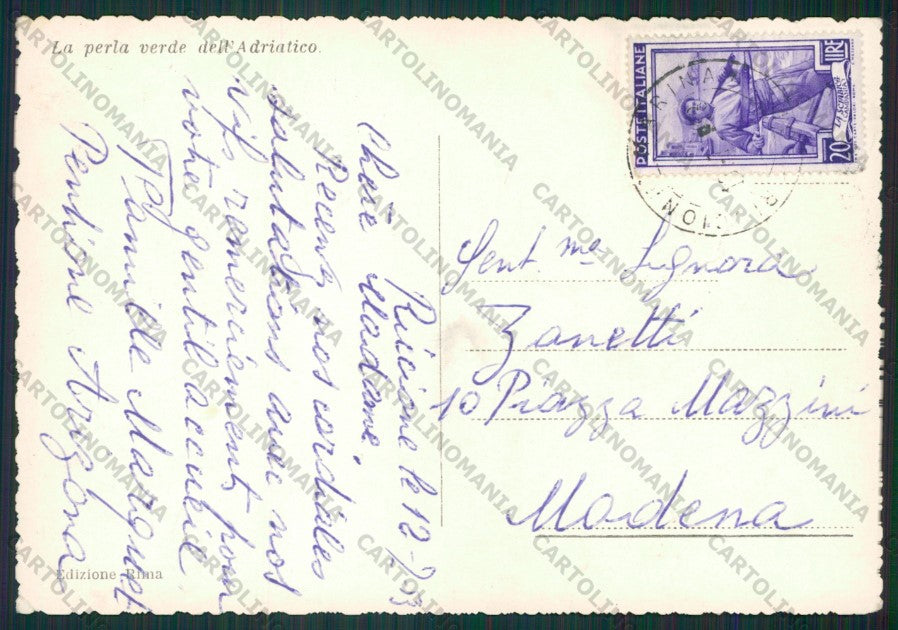 La perla verde dell'Adriatico.
POSTE ITALIANE
LIRE
20
Riccione le 12-7-53
Chère Madame,
Recevez nos cordiales
salutations avec nos
vifs remerciements pour
votre gentil accueil
Famille
Pensione Arizona
Gent.ma Signora
Zanetti
10 Piazza Mazzini
Modena
Edizione Rima
CARTOLINOMANIA